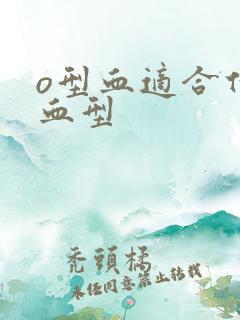 o型血適合
血型
禿頭橘
未经同意禁止转载